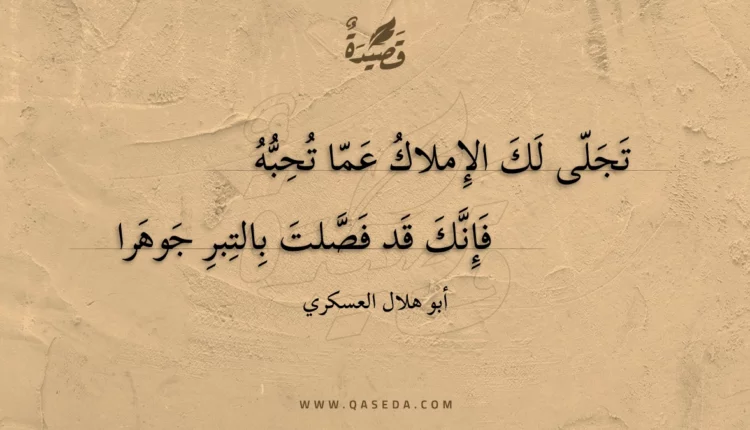 قَصِيْدَةٌ
تَجَلّى لَكَ الإِملاكُ عَمّا تُحِبُّهُ
فَإِنَّكَ قَد فَصَّلتَ بِالتِبرِ جَوهَرا
أبو هلال العسكري
WWW.QASEDA.COM